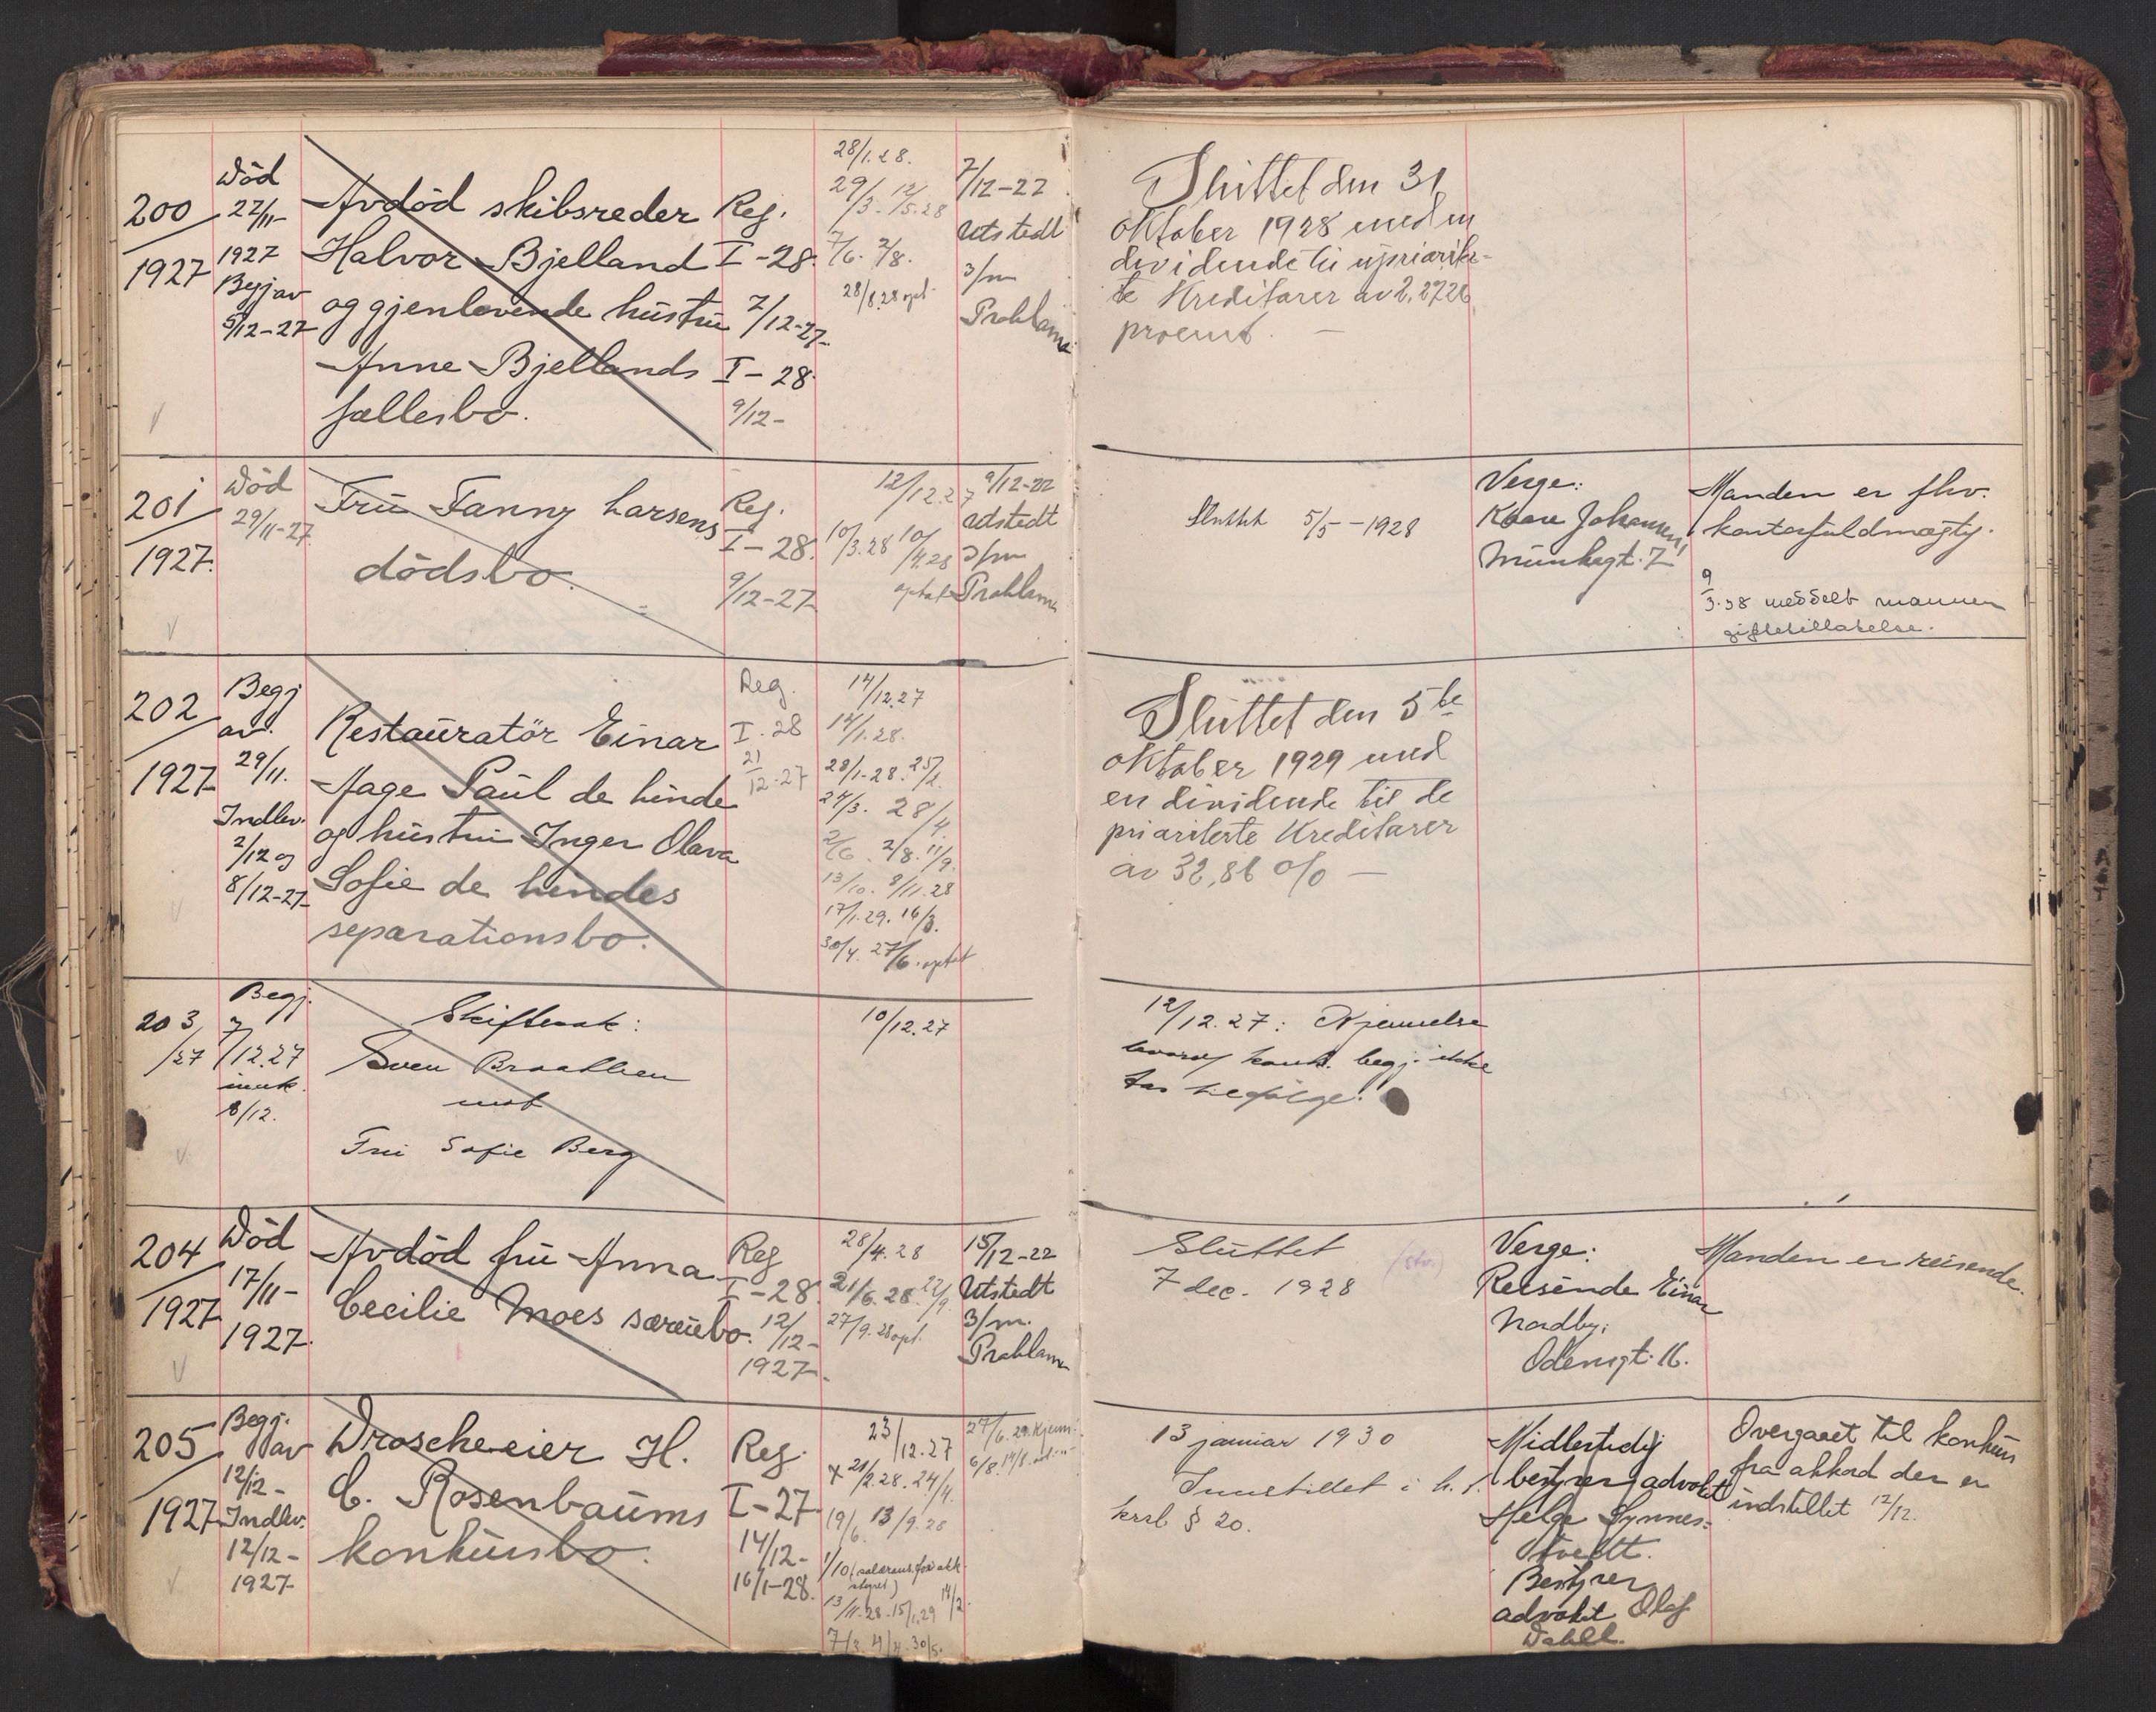 200
1927
Död
22/11-
1927
Begj av
5/12-27
Avdöd skibsreder
Halvor Bjelland
og gjenlevende hustru
Anne Bjellands
fællesbo.
Reg.
I-28.
7/12-27-
I-28
9/12-
28/1.28.
29/3. 12/5.28
7/6. 2/8.
28/8.28 opt.
7/12-27
Utstedt
3/m
Proklama
Sluttet den 31
oktober 1928 med en
dividende til upriorite-
te Kreditorer av 2,2726
procent. —
201
1927.
Död
29/11-27.
Fru Fanny Larsens
dödsbo.
Reg.
I-28.
9/12-27-
12/12.27
10/3.28 10/4.28
optat
9/12-27
utstedt
3/m
Proklama
Sluttet 5/5-1928
Verge:
Kaare Johansen,
Munkegt. 7
Manden er fhv.
kontorfuldmægtig.
9/3.38 meddelt mannen
giftetillatelse.
202
1927
Begj
av.
29/11.
Indlev.
2/12 og
8/12-27-
Restauratör Einar
Aage Paul de Linde
og hustru Inger Olava
Sofie de Lindes
separationsbo.
Reg.
I.28
21/12-27
14/12.27
14/1.28.
28/1-28. 25/2.
24/3. 28/4.
2/6. 2/8. 11/9.
13/10. 8/11.28
17/1.29. 16/3.
30/4. 27/6. optat
Sluttet den 5te
oktober 1929 med
en dividende til de
prioriterte Kreditorer
av 32,86 o/o —
203
/27
Begj.
7/12.27
innk.
8/12.
Skiftesak:
Sven Braathen
mot
Fru Sofie Berg
10/12.27
12/12.27: Kjennelse
hvorv konk. begj. ikke
tas tilfölge.
204
1927
Död
17/11-
1927.
Avdöd fru Anna
Cecilie Moes særeiebo.
Reg
I-28.
12/12-
1927-.
28/4.28
21/6.28. 22/9.
27/9.28 opt.
15/12-27
Utstedt
3/m.
Proklama
Sluttet
7 dec. 1928
(Stv.)
Verge:
Reisende Einar
Nordby,
Odensgt. 16.
Manden er reisende.
205
1927
Begj.
av
12/12-
Indlev.
12/12-
1927-
Droscheeier H.
C. Rosenbaums
konkursbo.
Reg.
I-27
14/12-
16/1-28.
23/12.27
21/2.28. 24/4.
19/6. 13/9.28
1/10 (salærans. for akk.
styret)
13/11-28-15/1.29 14/2.
7/3. 4/4. 30/5.
27/6.29. Kjenn.
6/8. 14/8.
13 januar 1930
Innstillet i h. t.
krsl § 20.
Midlertidig
bestyrer advokat
Helge Synnes-
tvedt.
Bestyrer
advokat Olaf
Dahll.
Overgaaet til konkurs
fra akkord der er
indstillet 12/12.